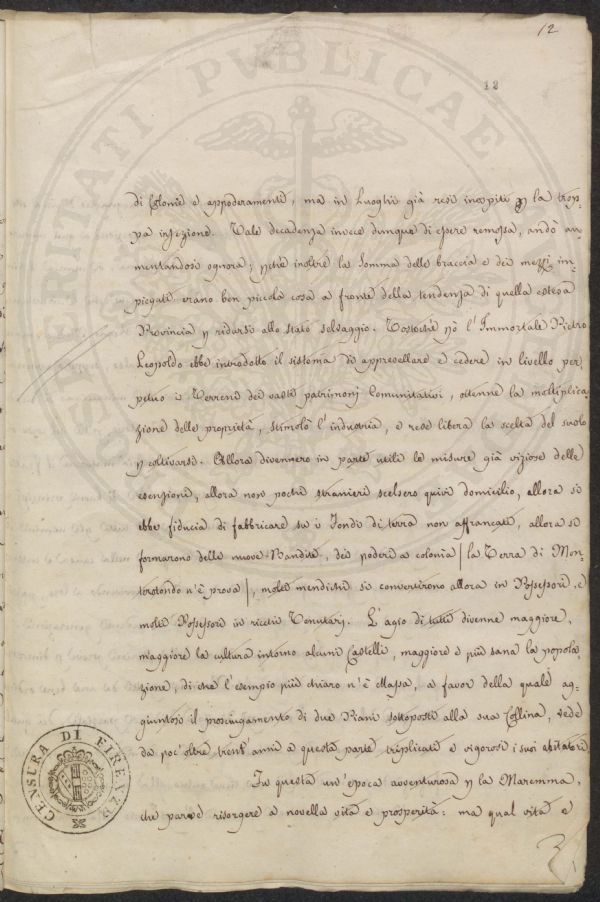 12
12
di Colonie e appoderamenti, ma in Luoghi già resi inospiti p la trop-
pa infezione. Tale decadenza invece dunque di essere remossa, andò au-
mentandosi ognora; pchè inoltre la Somma delle braccia e dei mezzi im-
piegati erano ben piccola cosa a fronte della tendenza di quella estesa
Provincia p ridursi allo stato selvaggio. Tostochè pò l'Immortale Pietro
Leopoldo ebbe introdotto il sistema di appresellare e cedere in livello per-
petuo i Terreni dei vasti patrimonj Comunitativi, ottenne la moltiplica-
zione delle proprietà, stimolò l'industria, e rese libera la scelta del suolo
p coltivarsi. Allora divennero in parte utili le misure già viziose delle
esenzioni, allora non pochi stranieri scelsero quivi domicilio, allora si
ebbe fiducia di fabbricare su i Fondi di terra non affrancati, allora si
formarono delle nuove Bandite, dei poderi a colonia | la Terra di Mon-
terotondo n'è prova |, molti mendichi si convertirono allora in Possessori, e
molti Possessori in ricchi Tenutarj. L'agio di tutti divenne maggiore,
maggiore la cultura intorno alcuni Castelli, maggiore e più sana la popola-
zione, di che l'esempio più chiaro n'è Massa, a favor della quale ag-
giuntosi il prosciugamento di due Piani sottoposti alla sua Collina, vede
da poc'oltre trent'anni a questa parte triplicati e vigorosi i suoi abitatori.
Fu questa un'epoca avventurosa p la Maremma,
che parve risorgere a novella vita e prosperità: ma qual vita e
CENSURA DI FIRENZE